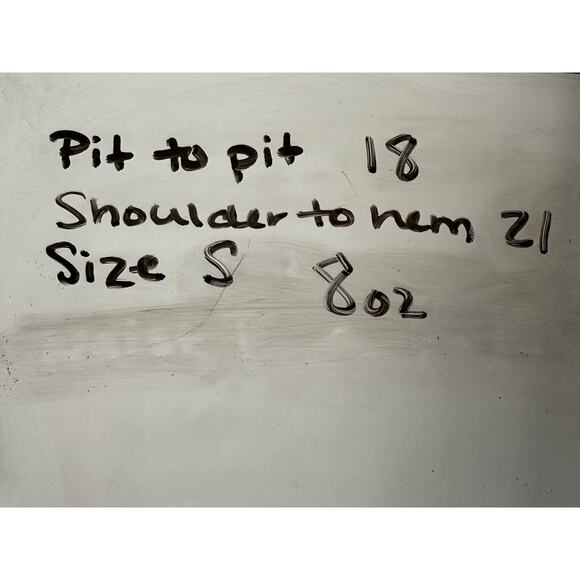 Pit to pit 18
Shoulder to hem 21
Size S 8oz